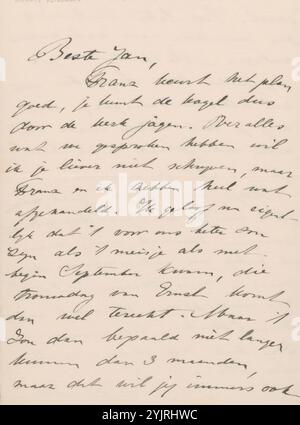 Beste Jan,
Frans keurt het plan
goed, je kunt de kogel dus
door de kerk jagen. Over alles
wat we gesproken hebben wil
ik je liever niet schrijven, maar
Frans en ik hebben heel wat
afgehandeld. Ik geloof nu eigen-
lijk dat 't voor ons beter zou
zijn als 't meisje als met
begin September kwam, die
trouwdag van Ernst komt
dan wel terecht. Maar 't
zou dan bepaald niet langer
kunnen dan 3 maanden,
maar dat wil jij immers ook
alamy
Image ID: 2YJRHWC
www.alamy.com